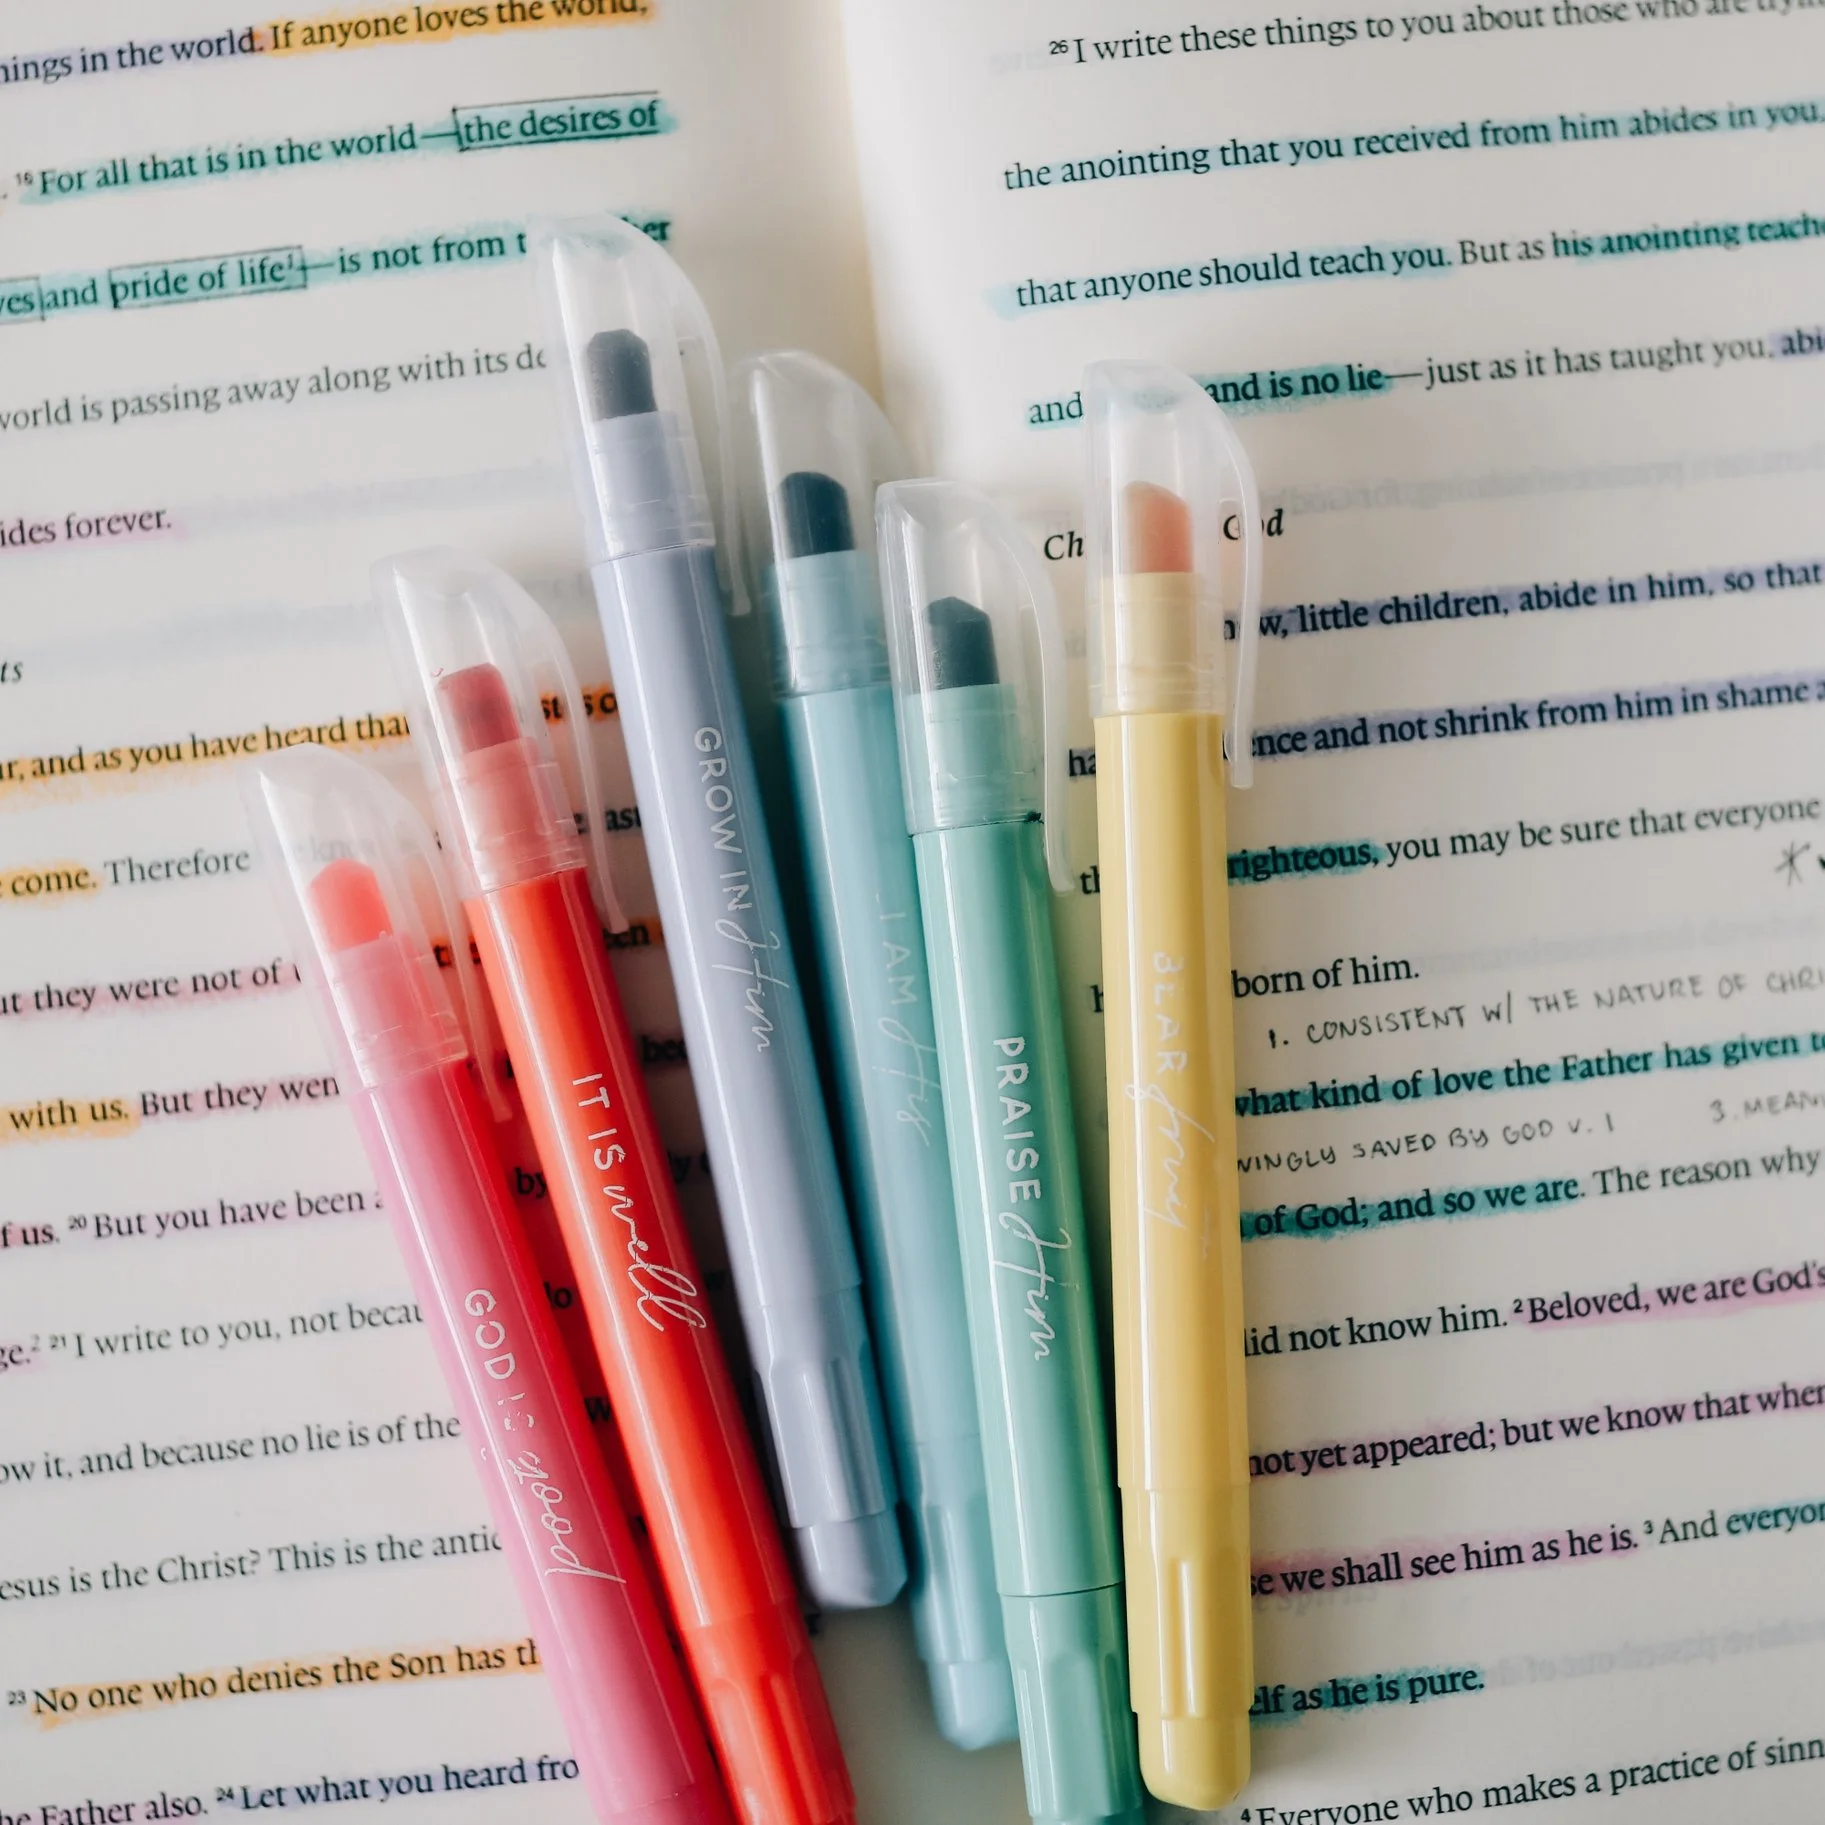 things in the world. If anyone loves the world,
. 16 For all that is in the world—the desires of
and pride of life1—is not from
world is passing away along with its
forever.
and as you have heard that
come. Therefore
they were not of
with us. But they
of us. 20 But you have been
2 21 I write to you, not
it, and because no lie is of the
is the Christ? This is the
23 No one who denies the Son has
Father also. 24 Let what you heard
26 I write these things to you about those who are
the anointing that you received from him abides in you,
that anyone should teach you. But as his anointing
and and is no lie—just as it has taught you,
God
little children, abide in him, so that
and not shrink from him in shame
righteous, you may be sure that everyone
born of him.
1. CONSISTENT W/ THE NATURE OF
what kind of love the Father has given
SAVED BY GOD V. 1 3.
of God; and so we are. The reason why
did not know him. 2 Beloved, we are God's
not yet appeared; but we know that when
we shall see him as he is. 3 And
as he is pure.
4 Everyone who makes a practice of
GOD IS good
IT IS well
GROW IN Him
I AM His
PRAISE Him
BEAR fruit